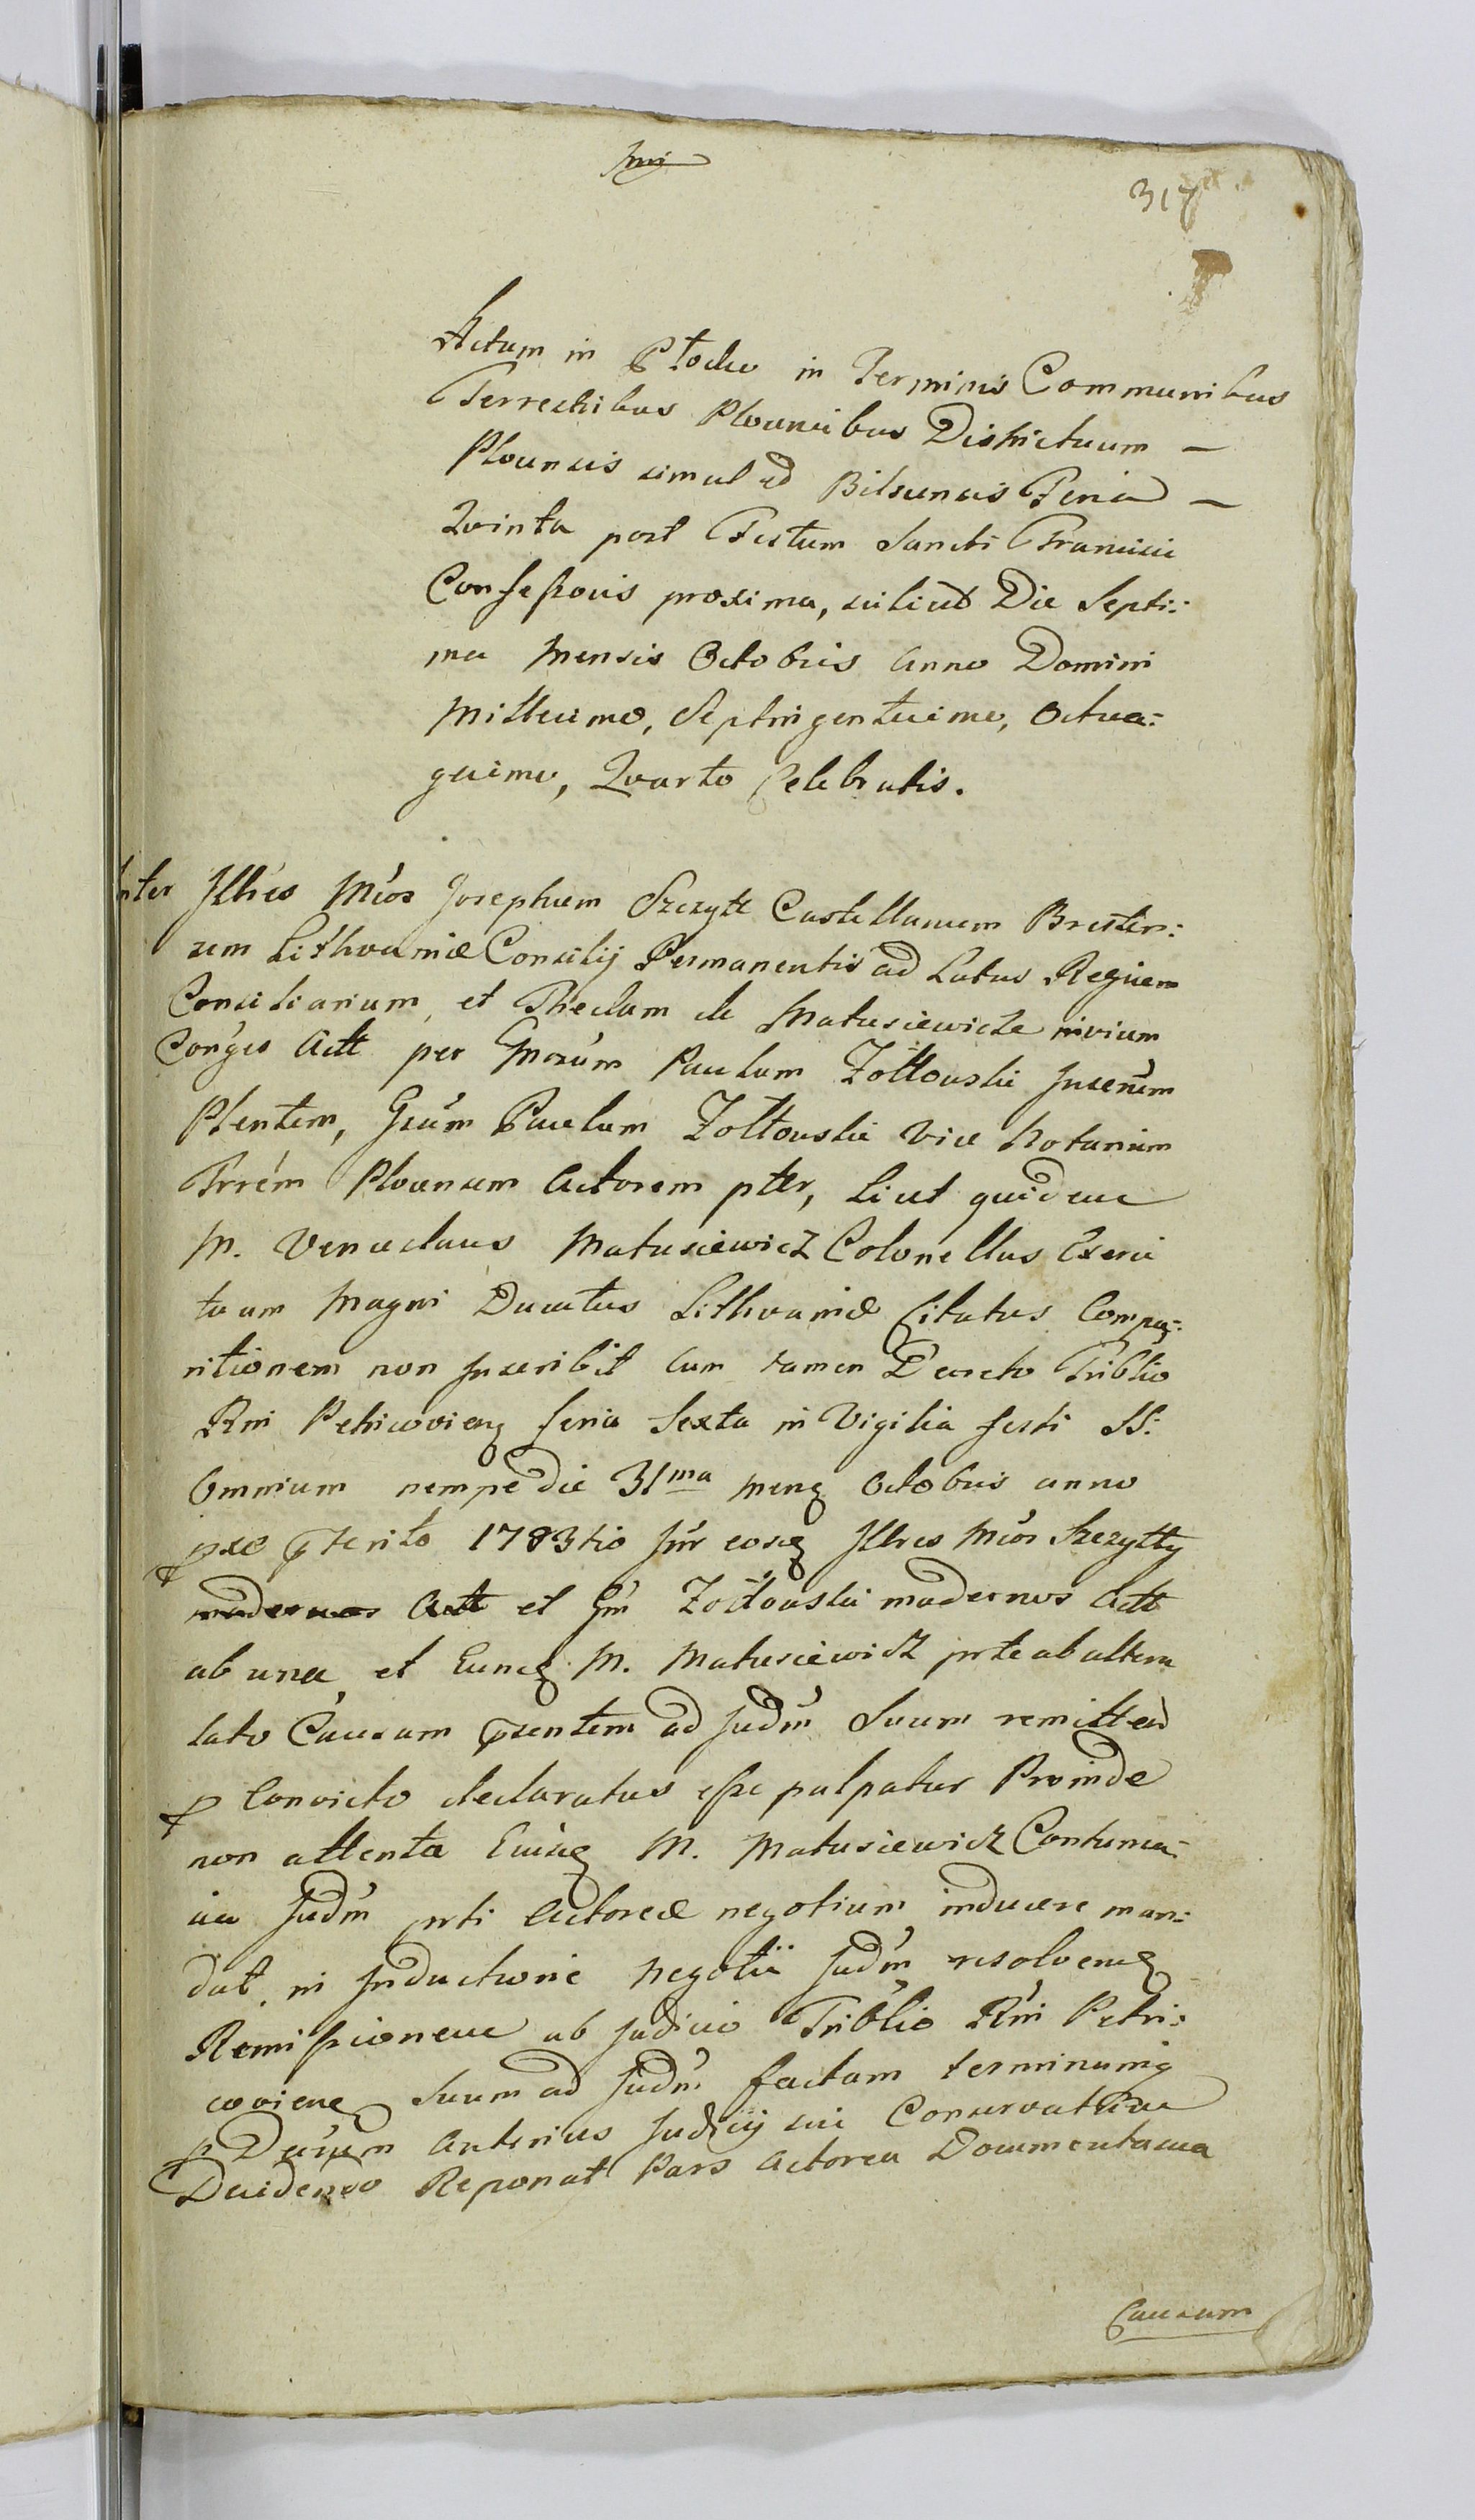 317
Actum in Płocko in Terminis Communibus
Terrestribus Plocensibus Districtuum —
Plocensis simul ad Bilscensis Feria —
Quinta post Festum Sancti Francisci
Confessoris proxima, scilicet Die Septi:
ma Mensis Octobris Anno Domini
Millesimo, Septingentesimo, Octua:
gesimo, Quarto Celebratis.
Inter Illres Mcos Josephum Szczytt Castellanum Bresten:
sem Lithvaniæ Consilij Permanentis ad Latus Regium
Consiliarium, et Theclam de Matusiewicze
Conges Actt per Gnosum Paulum Zółtowski Juserum
Plentem, Gsum Paulum Zółtowski Vice Notarium
Trrem Plocensem Actorem pter, Licet quidem
M. Venceslaus Matusiewicz Colonellus Exerci
tuum Magni Ducatus Lithvaniæ Citatus Compa:
ritionem non Inscribit Cum tamen Decreto Triblio
Rni Petricovienq feria Sexta in Vigilia festi SS:
Omnium nempe die 31ma Menq Octobris anno
pxe pterito 1783tio Inr eosq Illres Mcos Szczytty
modernos Actt et Gm Zółtowski modernos Actt
ab una et Eunq M. Matusiewicz prte ab altera
lato Causam pzentem ad Judm Suum remitten
p Convicto declaratus esse palpatur Proinde
non attenta Eiusq M. Matusiewicz Contuma:
cia Judm prti Actoreæ negotium inducere man:
dat. in Inductione Negotii Judm resolvenq
Remissionem ab Judicio Triblio Rni Petri:
covienq Suum ad Judm factam terminumq
p Decisum Anterius Judicij sui Conservatum
Decidendo Reponat Pars Actorea Documenta sua
Causam